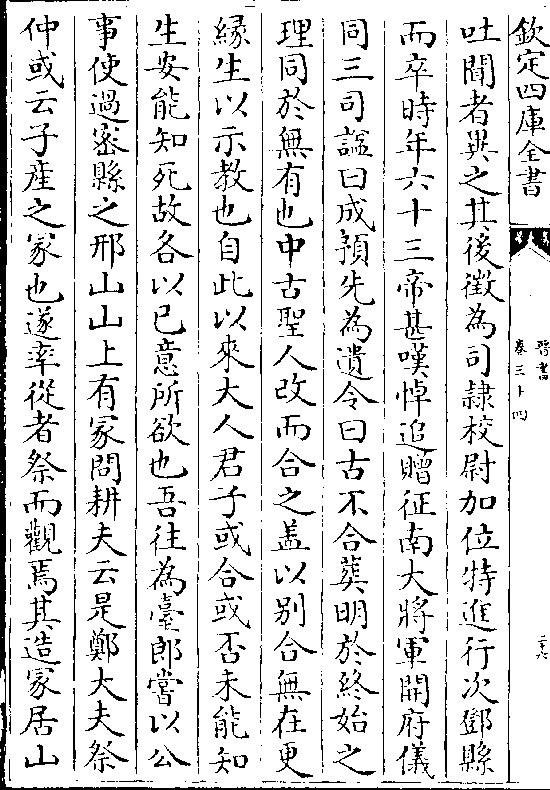 欽定四庫全書
晉書
卷三十四
吐聞者異之其後徵為司隷校尉加位特進行次鄧縣
而卒時年六十三帝甚嘆悼追贈征南大將軍開府儀
同三司諡曰成預先為遺令曰古不合葬明於終始之
理同於無有也中古聖人改而合之葢以别合無在更
縁生以示教也自此以來大人君子或合或否未能知
生安能知死故各以已意所欲也吾往為臺郎嘗以公
事使過密縣之邢山山上有冢問耕夫云是鄭大夫祭
仲或云子産之冢也遂率從者祭而觀焉其造冢居山